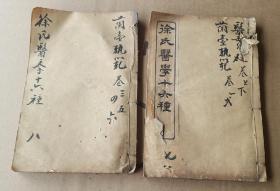 蘭臺軌範 卷三五
四六
徐氏醫學十六種 八
醫貫砭 卷上下
蘭臺軌範 卷一弍
徐氏醫學十六種